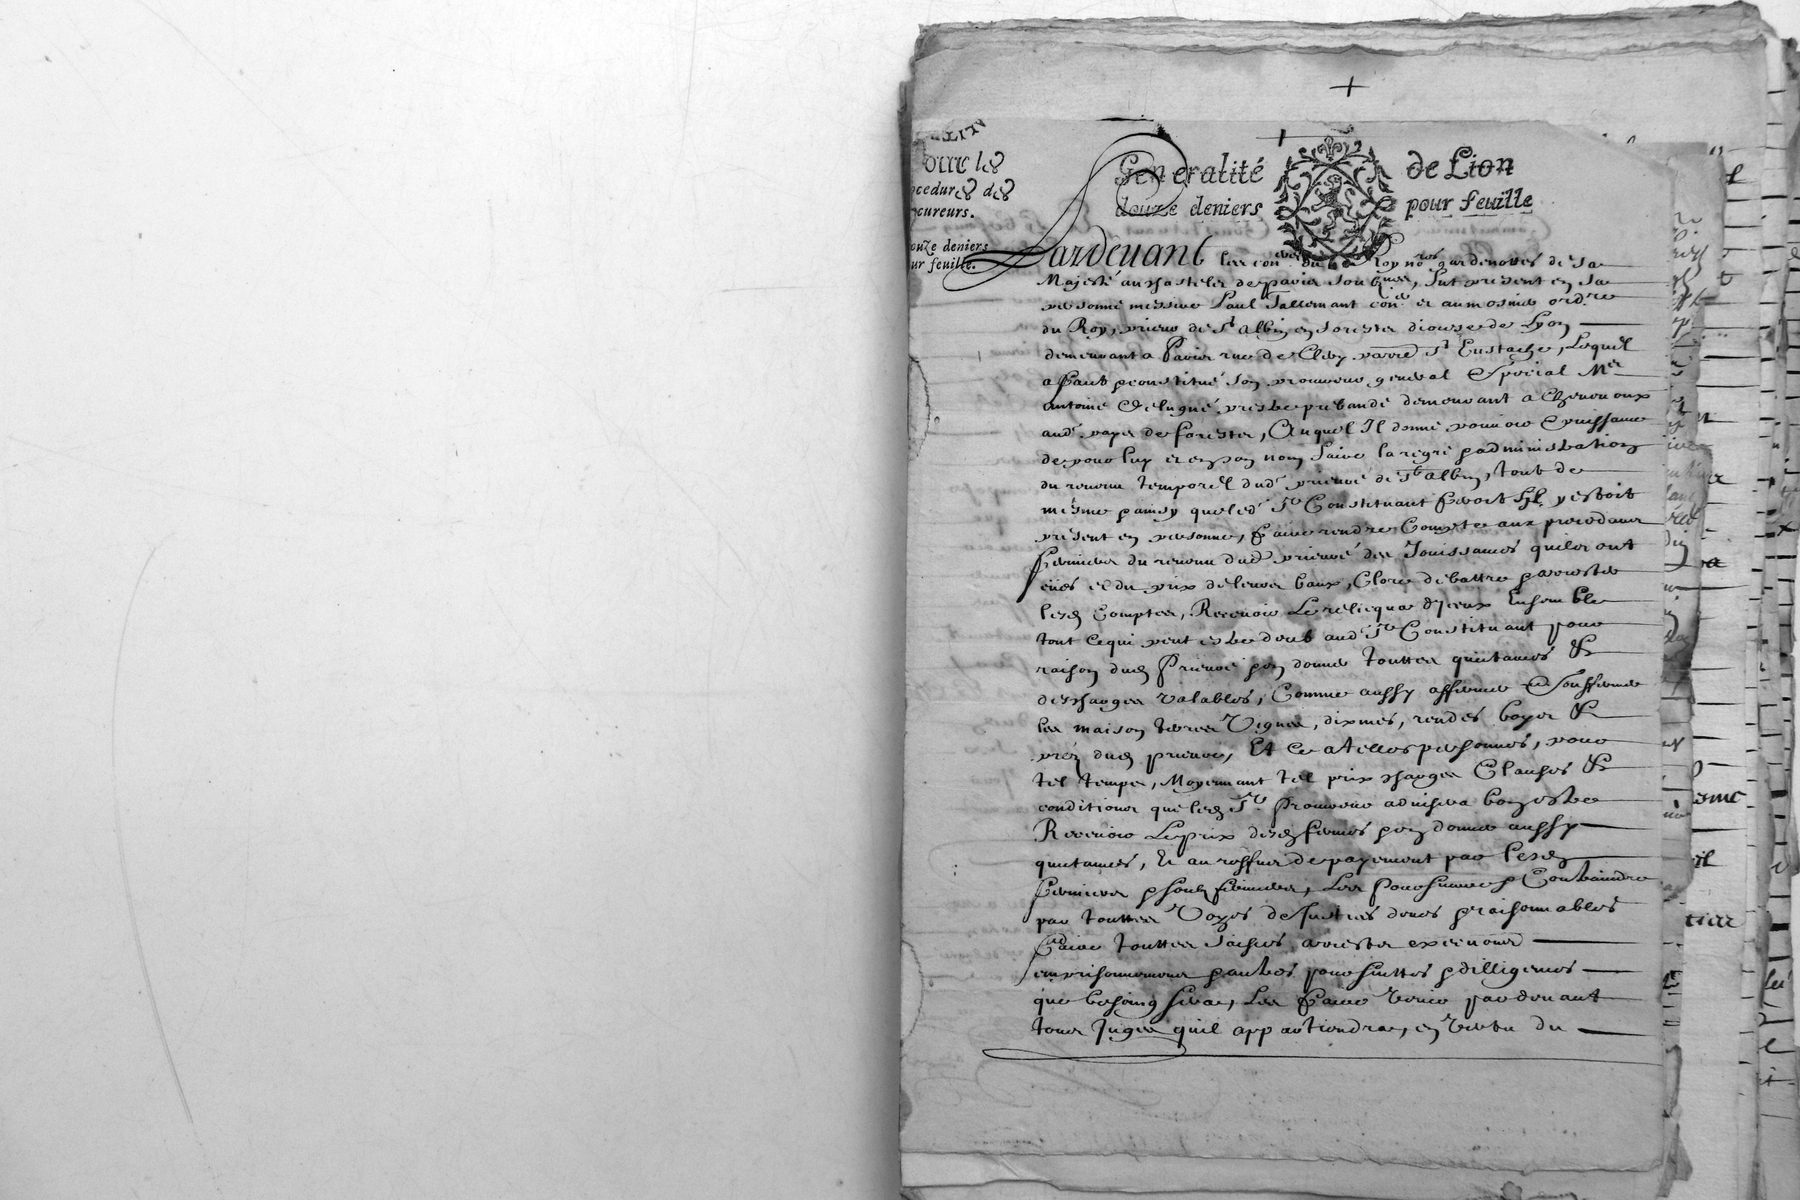 +
Generalité de Lion
douze deniers pour feuille
our les
ocedures des
cureurs.
ouze deniers
ur feuille.
Pardevant les con.ers du Roy no.res gardenottes de sa
Majesté au Chastelet de paris soubz.nez, fut present en sa
personne messire Paul Tallemant con.er et aumosnier ord.re
du Roy, prieur de S.t Albin en forestz diocese de Lyon
demeurant a Paris rue de Clery parre S.t Eustache, Lequel
a fait & constitué son procureur general & special M.re
Antoine Delugné prestre prebandé demeurant a Chenereoux
aud. pays de forestz, Auquel Il donne pouvoir & puissance
de pour luy et en son nom faire la regie & administration
du revenu temporel dud. prieuré de S.t Albin, tout de
mesme & ainsy que led. S.r Constituant feroit sil y estoit
present en personne, faire rendre Compte aux precedans
fermiers du revenu dud. prieuré des Jouissances quilz ont
eues et du prix de leurs baux, Clore debattre & arrester
lesd. Comptes, Recevoir Le relicqua d'Iceux Ensemble
tout ce qui peut estre deub aud. S.r Constituant pour
raison dud. Prieuré & en donner touttes quittances &
descharges valables, Comme aussy affermer & soufermer
les maison terres Vignes, dixmes, rendes boys &
prez dud. prieuré, Et Ce a telles personnes, pour
tel temps, Moyennant tel prix charges Clauses &
conditions que led. S.r Procureur advisera bon estre
Recevoir Le prix desd. fermes & en donner aussy
quittances, Et au reffus de payement par lesd.
fermiers & soubz fermiers, Les Poursuivre & Contraindre
par touttes Voyes de Justices deues & raisonnables
faire touttes saisies, arrests executions
emprisonnemens & autres poursuittes & dilligences
que besoing sera, Les faire Venir pardevant
tous Juges quil appartiendra, en vertu du